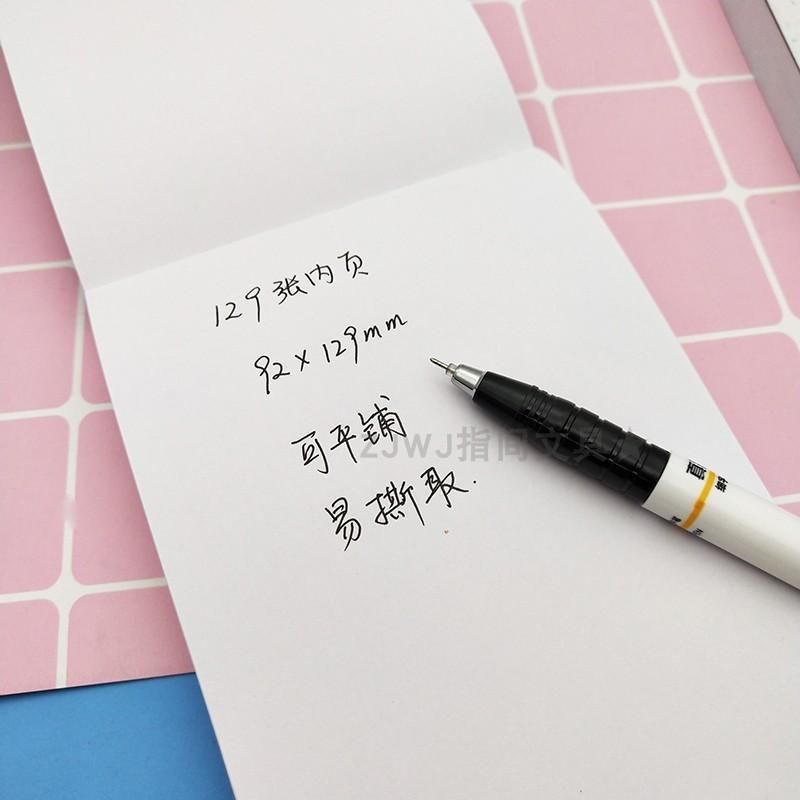 129张内页
92×129mm
可平铺
易撕取.
ZJWJ指间文具